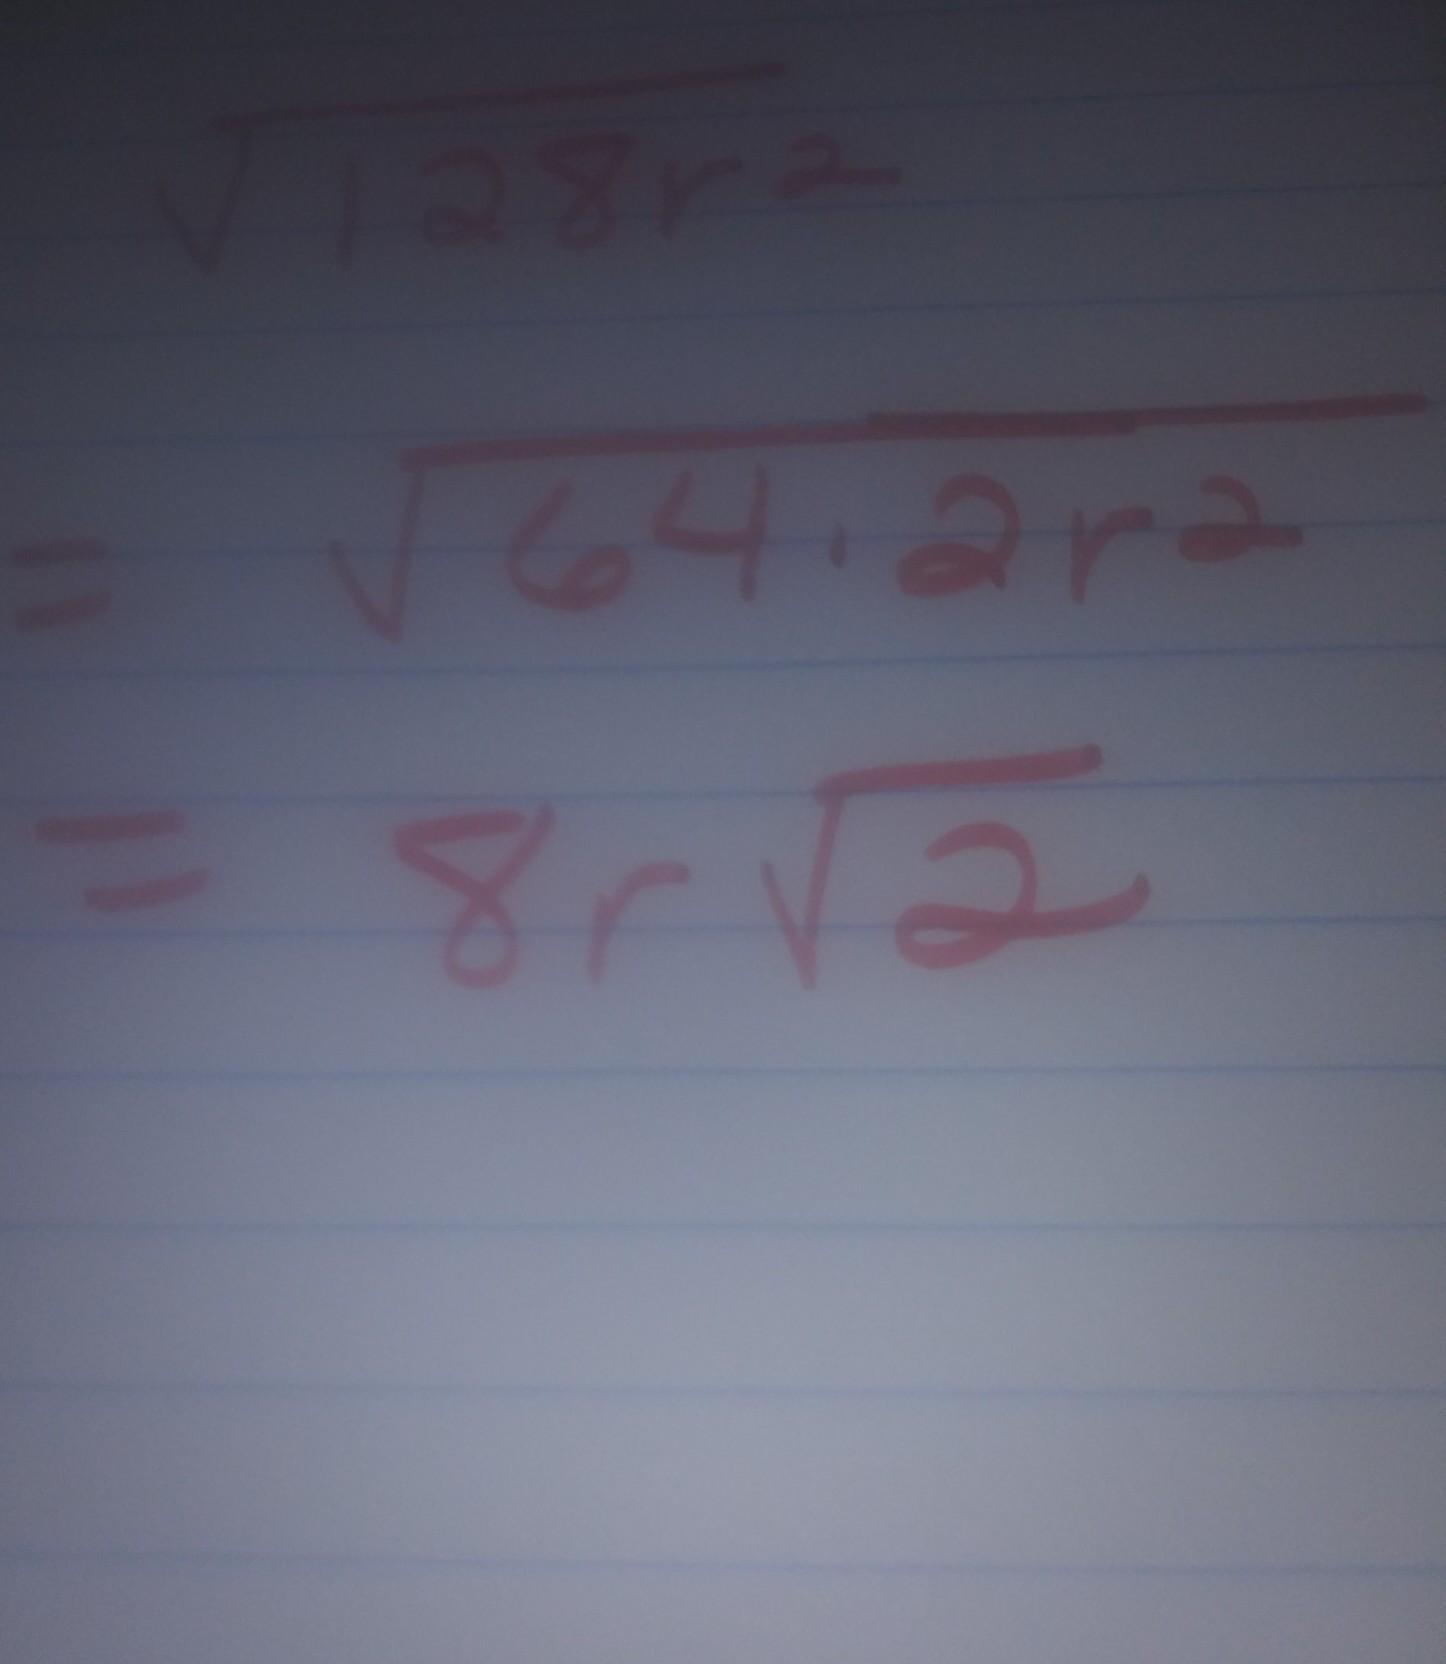 √128r²
= √64·2r²
= 8r√2